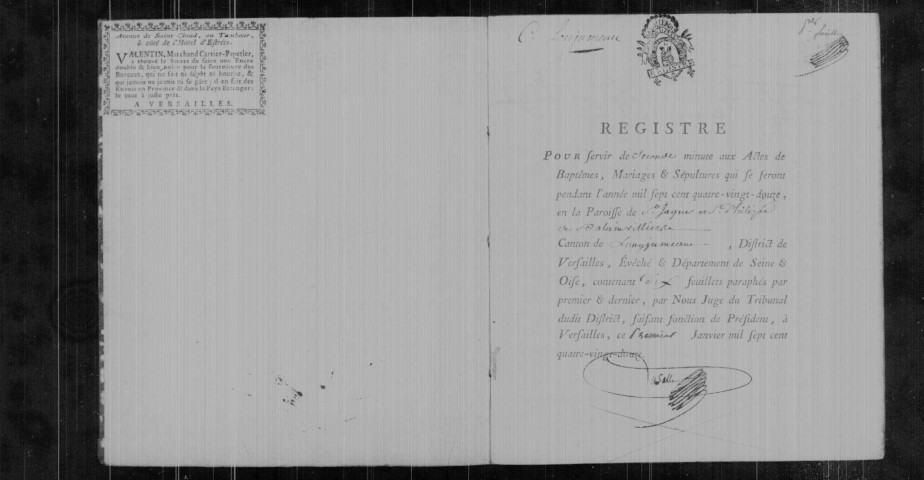 Avenue de Saint Cloud, au Tambour,
à côté de l'Hôtel d'Estrées.
VALENTIN, Marchand Cartier-Papetier,
a trouvé le Secret de faire une Encre
double & bien noire pour la fourniture des
Bureaux, qui ne fait ni dépôt ni bourbe, &
qui jamais ne jaunit ni se gâte; il en fait des
Envois en Province & dans le Pays Etranger;
le tout à juste prix.
A VERSAILLES.
C. Lonjumeau
feuille
REGISTRE
POUR servir de seconde minute aux Actes de
Baptêmes, Mariages & Sépultures qui se feront
pendant l'année mil sept cent quatre-vingt-douze,
en la Paroisse de St. Jaque et St. Philippe
de
Canton de Lonjumeau, District de
Versailles, Évêché & Département de Seine &
Oise, contenant dix feuillets paraphés par
premier & dernier, par Nous Juge du Tribunal
dudit District, faisant fonction de Président, à
Versailles, ce Premier Janvier mil sept cent
quatre-vingt-douze.